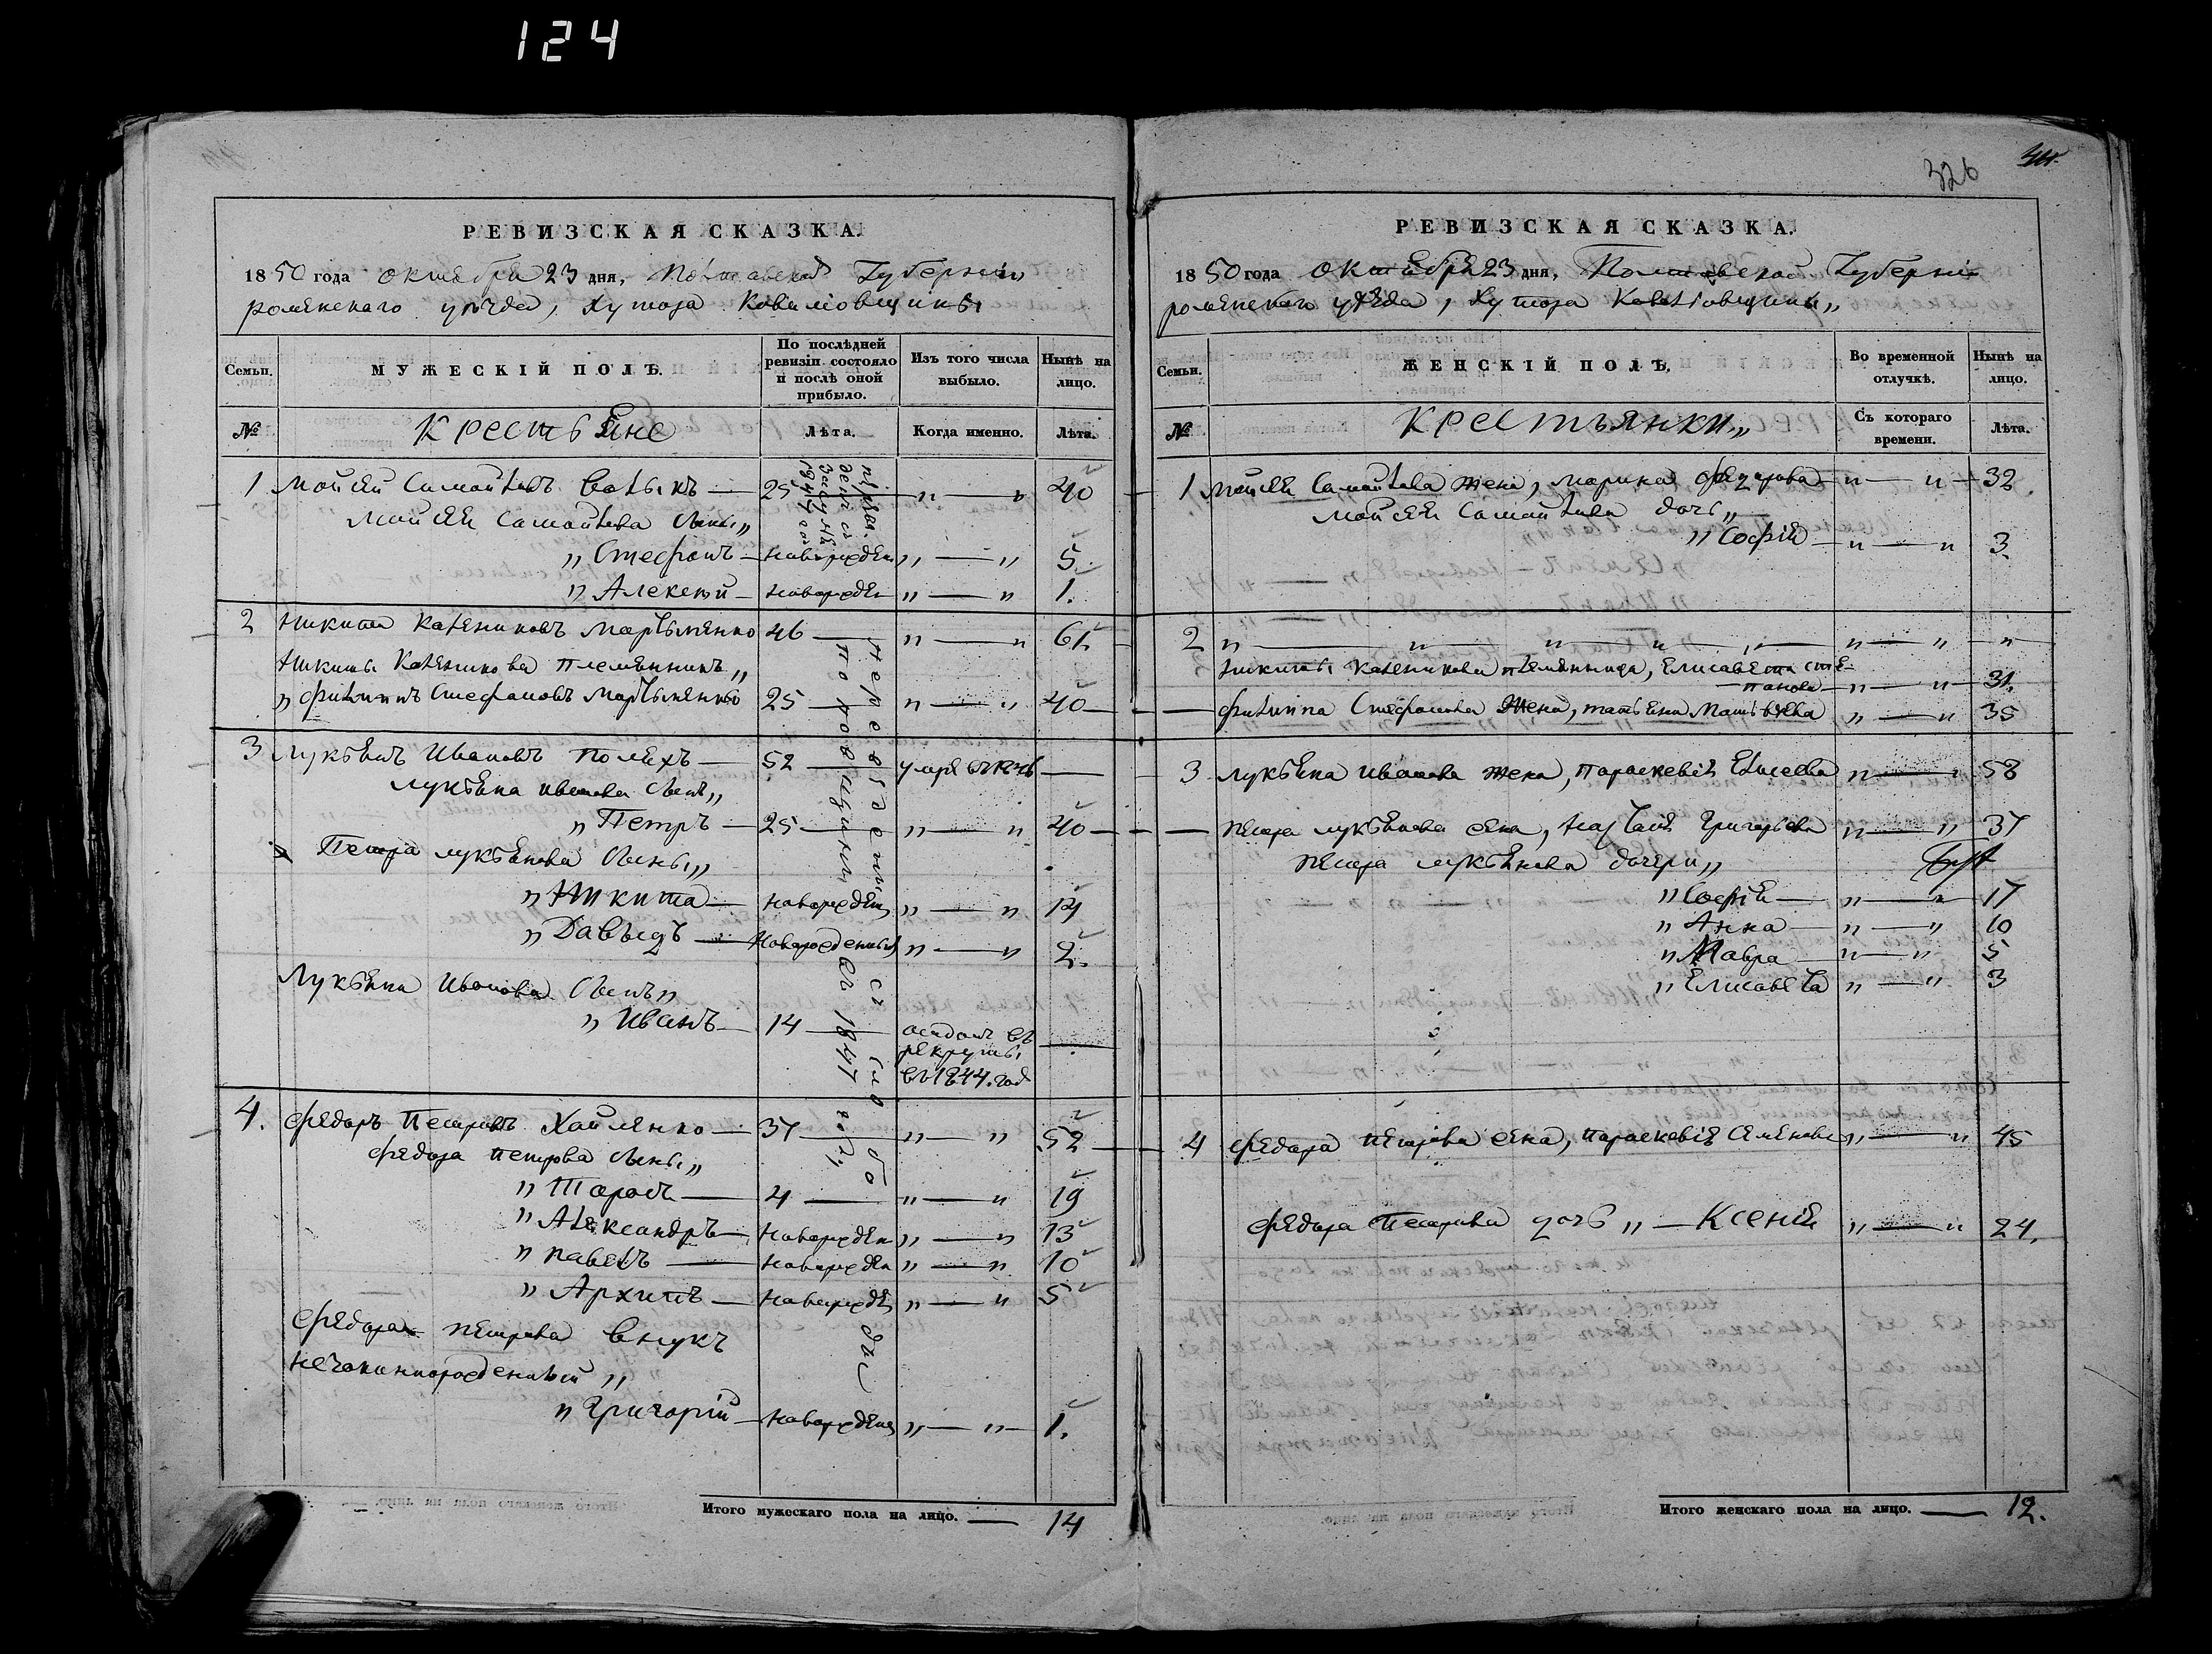 124
326
РЕВИЗСКАЯ СКАЗКА.
1850 года октября 23 дня, Полтавской Губерніи
роменскаго уезда, Хутора
Семьи.
МУЖЕСКІЙ ПОЛЪ.
По послѣдней ревизіи состояло и послѣ оной прибыло.
Изъ того числа выбыло.
Нынѣ на лицо.
№
Крестьяне
Лѣта.
Когда именно.
Лѣта.
1 Мойсей Самойловъ — 25 — „ — „ 40
Мойсея Самойлова Сыны „
„ Стефанъ — новорожден „ — „ 5.
„ Алексей — новорожден „ — „ 1.
2 Никита Калениковъ 46 — „ — „ 61
Никиты Каленикова племянникъ „
„ Филиппъ Стефановъ 25 — „ — „ 40
3 Лукьянъ Ивановъ 52 —
Лукьяна Иванова Сынъ „
„ Петръ — 25 — „ — „ 40
Петра Лукьянова Сыны „
„ Никита — новорожден „ — „ 14
„ Давыдъ — новорожденный „ — „ 2.
Лукьяна Иванова Сынъ „
„ Иванъ — 14 — отданъ въ рекруты въ 1844. год
4. Федоръ Петровъ — 37 — „ — „ 52
Федора Петрова Сыны „
„ Тарасъ — 4 — „ — „ 19
„ Александръ — новорожден „ — „ 13
„ Павелъ — новорожден „ — „ 10
„ Архипъ — новорожде „ — „ 5
Федора Петрова внукъ
незаконнорожденный „
„ Григорій — новорожден „ — „ 1.
въ 1847 году
Итого мужескаго пола на лицо. — 14
РЕВИЗСКАЯ СКАЗКА.
1850 года октября 23 дня, Полтавской Губерніи
роменскаго уезда, Хутора
Семьи.
ЖЕНСКІЙ ПОЛЪ.
Во временной отлучкѣ.
Нынѣ на лицо.
№
Крестьянки „
Съ котораго времени.
Лѣта.
1 Мойсея Самойлова жена, Марина — „ — „ — 32
Мойсея Самойлова дочь „
„ Софія — „ — „ 3.
2 „ „ „ „ „ „ — „ „
Никиты Каленикова племянница, Елисавета Сте-
панова — „ — „ — 31.
Филиппа Стефанова Жена, татьяна Матвѣева „ — „ 35
3 Лукьяна Иванова жена, Параскевія Елисеева „ — „ 58
Петра Лукьянова жена, Григорьева „ — „ 37
Петра Лукьянова дочери „
„ Софія — „ — „ 17
„ Анна — „ — „ 10
„ Мавра — „ — „ 5
„ Елисавета „ — „ 3
4 Федора Петрова жена, Параскевія Семенова „ — „ 45
Федора Петрова дочь „ — Ксенія „ — „ 24.
Итого женскаго пола на лицо. — 12.